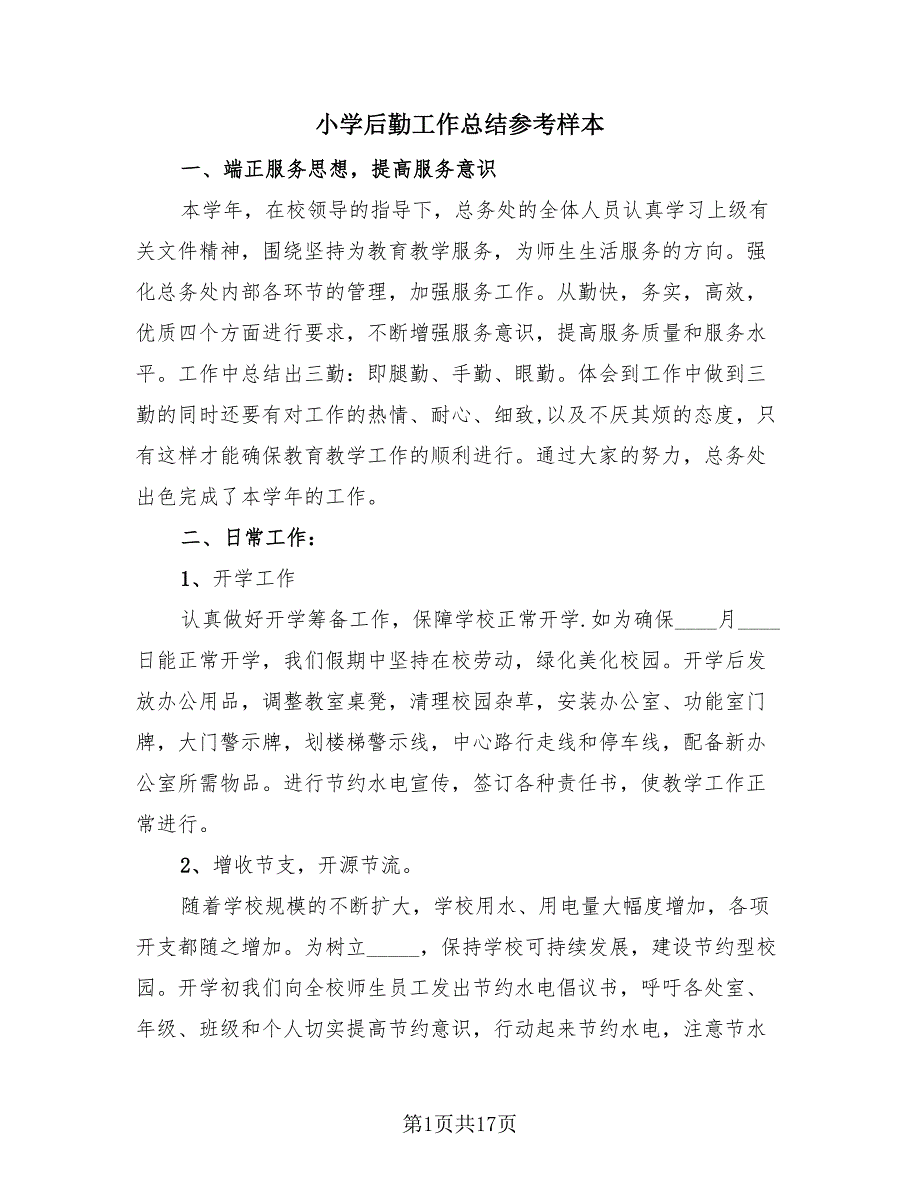 小学后勤工作总结参考样本
一、端正服务思想，提高服务意识
本学年，在校领导的指导下，总务处的全体人员认真学习上级有
关文件精神，围绕坚持为教育教学服务，为师生生活服务的方向。强
化总务处内部各环节的管理，加强服务工作。从勤快，务实，高效，
优质四个方面进行要求，不断增强服务意识，提高服务质量和服务水
平。工作中总结出三勤：即腿勤、手勤、眼勤。体会到工作中做到三
勤的同时还要有对工作的热情、耐心、细致,以及不厌其烦的态度，只
有这样才能确保教育教学工作的顺利进行。通过大家的努力，总务处
出色完成了本学年的工作。
二、日常工作：
1、开学工作
认真做好开学筹备工作，保障学校正常开学.如为确保____月____
日能正常开学，我们假期中坚持在校劳动，绿化美化校园。开学后发
放办公用品，调整教室桌凳，清理校园杂草，安装办公室、功能室门
牌，大门警示牌，划楼梯警示线，中心路行走线和停车线，配备新办
公室所需物品。进行节约水电宣传，签订各种责任书，使教学工作正
常进行。
2、增收节支，开源节流。
随着学校规模的不断扩大，学校用水、用电量大幅度增加，各项
开支都随之增加。为树立_____，保持学校可持续发展，建设节约型校
园。开学初我们向全校师生员工发出节约水电倡议书，呼吁各处室、
年级、班级和个人切实提高节约意识，行动起来节约水电，注意节水
第1页共17页